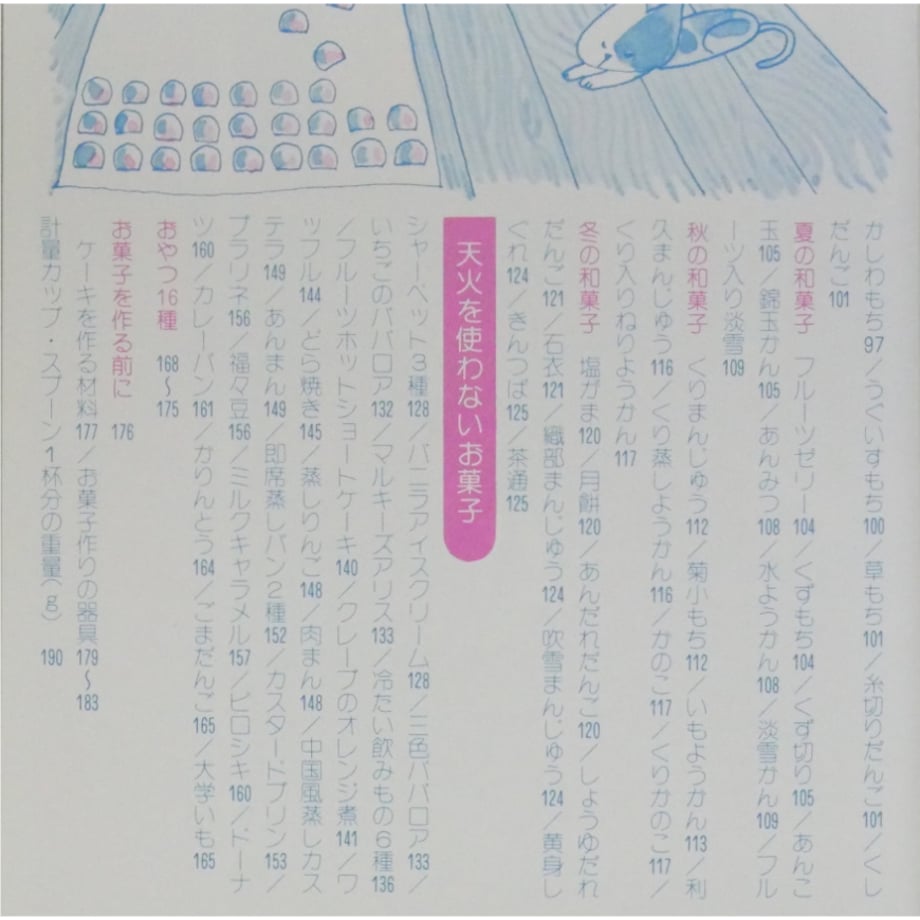 かしわもち97／うぐいすもち100／草もち101／糸切りだんご101／くし
だんご101
夏の和菓子　フルーツゼリー104／くずもち104／くず切り105／あんこ
玉105／錦玉かん105／あんみつ108／水ようかん108／淡雪かん109／フル
ーツ入り淡雪109
秋の和菓子　くりまんじゅう112／菊小もち112／いもようかん113／利
久まんじゅう116／くり蒸しようかん116／かのこ117／くりかのこ117／
くり入りねりようかん117
冬の和菓子　塩がま120／月餅120／あんだれだんご120／しょうゆだれ
だんご121／石衣121／織部まんじゅう124／吹雪まんじゅう124／黄身し
ぐれ124／きんつば125／茶通125
天火を使わないお菓子
シャーベット3種128／バニラアイスクリーム128／三色ババロア133／
いちごのババロア132／マルキーズアリス133／冷たい飲みもの6種136
／フルーツホットショートケーキ140／クレープのオレンジ煮141／ワ
ッフル144／どら焼き145／蒸しりんご148／肉まん148／中国風蒸しカス
テラ149／あんまん149／即席蒸しパン2種152／カスタードプリン153／
プラリネ156／福々豆156／ミルクキャラメル157／ピロシキ160／ドーナ
ツ160／カレーパン161／かりんとう164／ごまだんご165／大学いも165
おやつ16種　168〜175
お菓子を作る前に　176
ケーキを作る材料177／お菓子作りの器具179〜183
計量カップ・スプーン1杯分の重量(g)　190